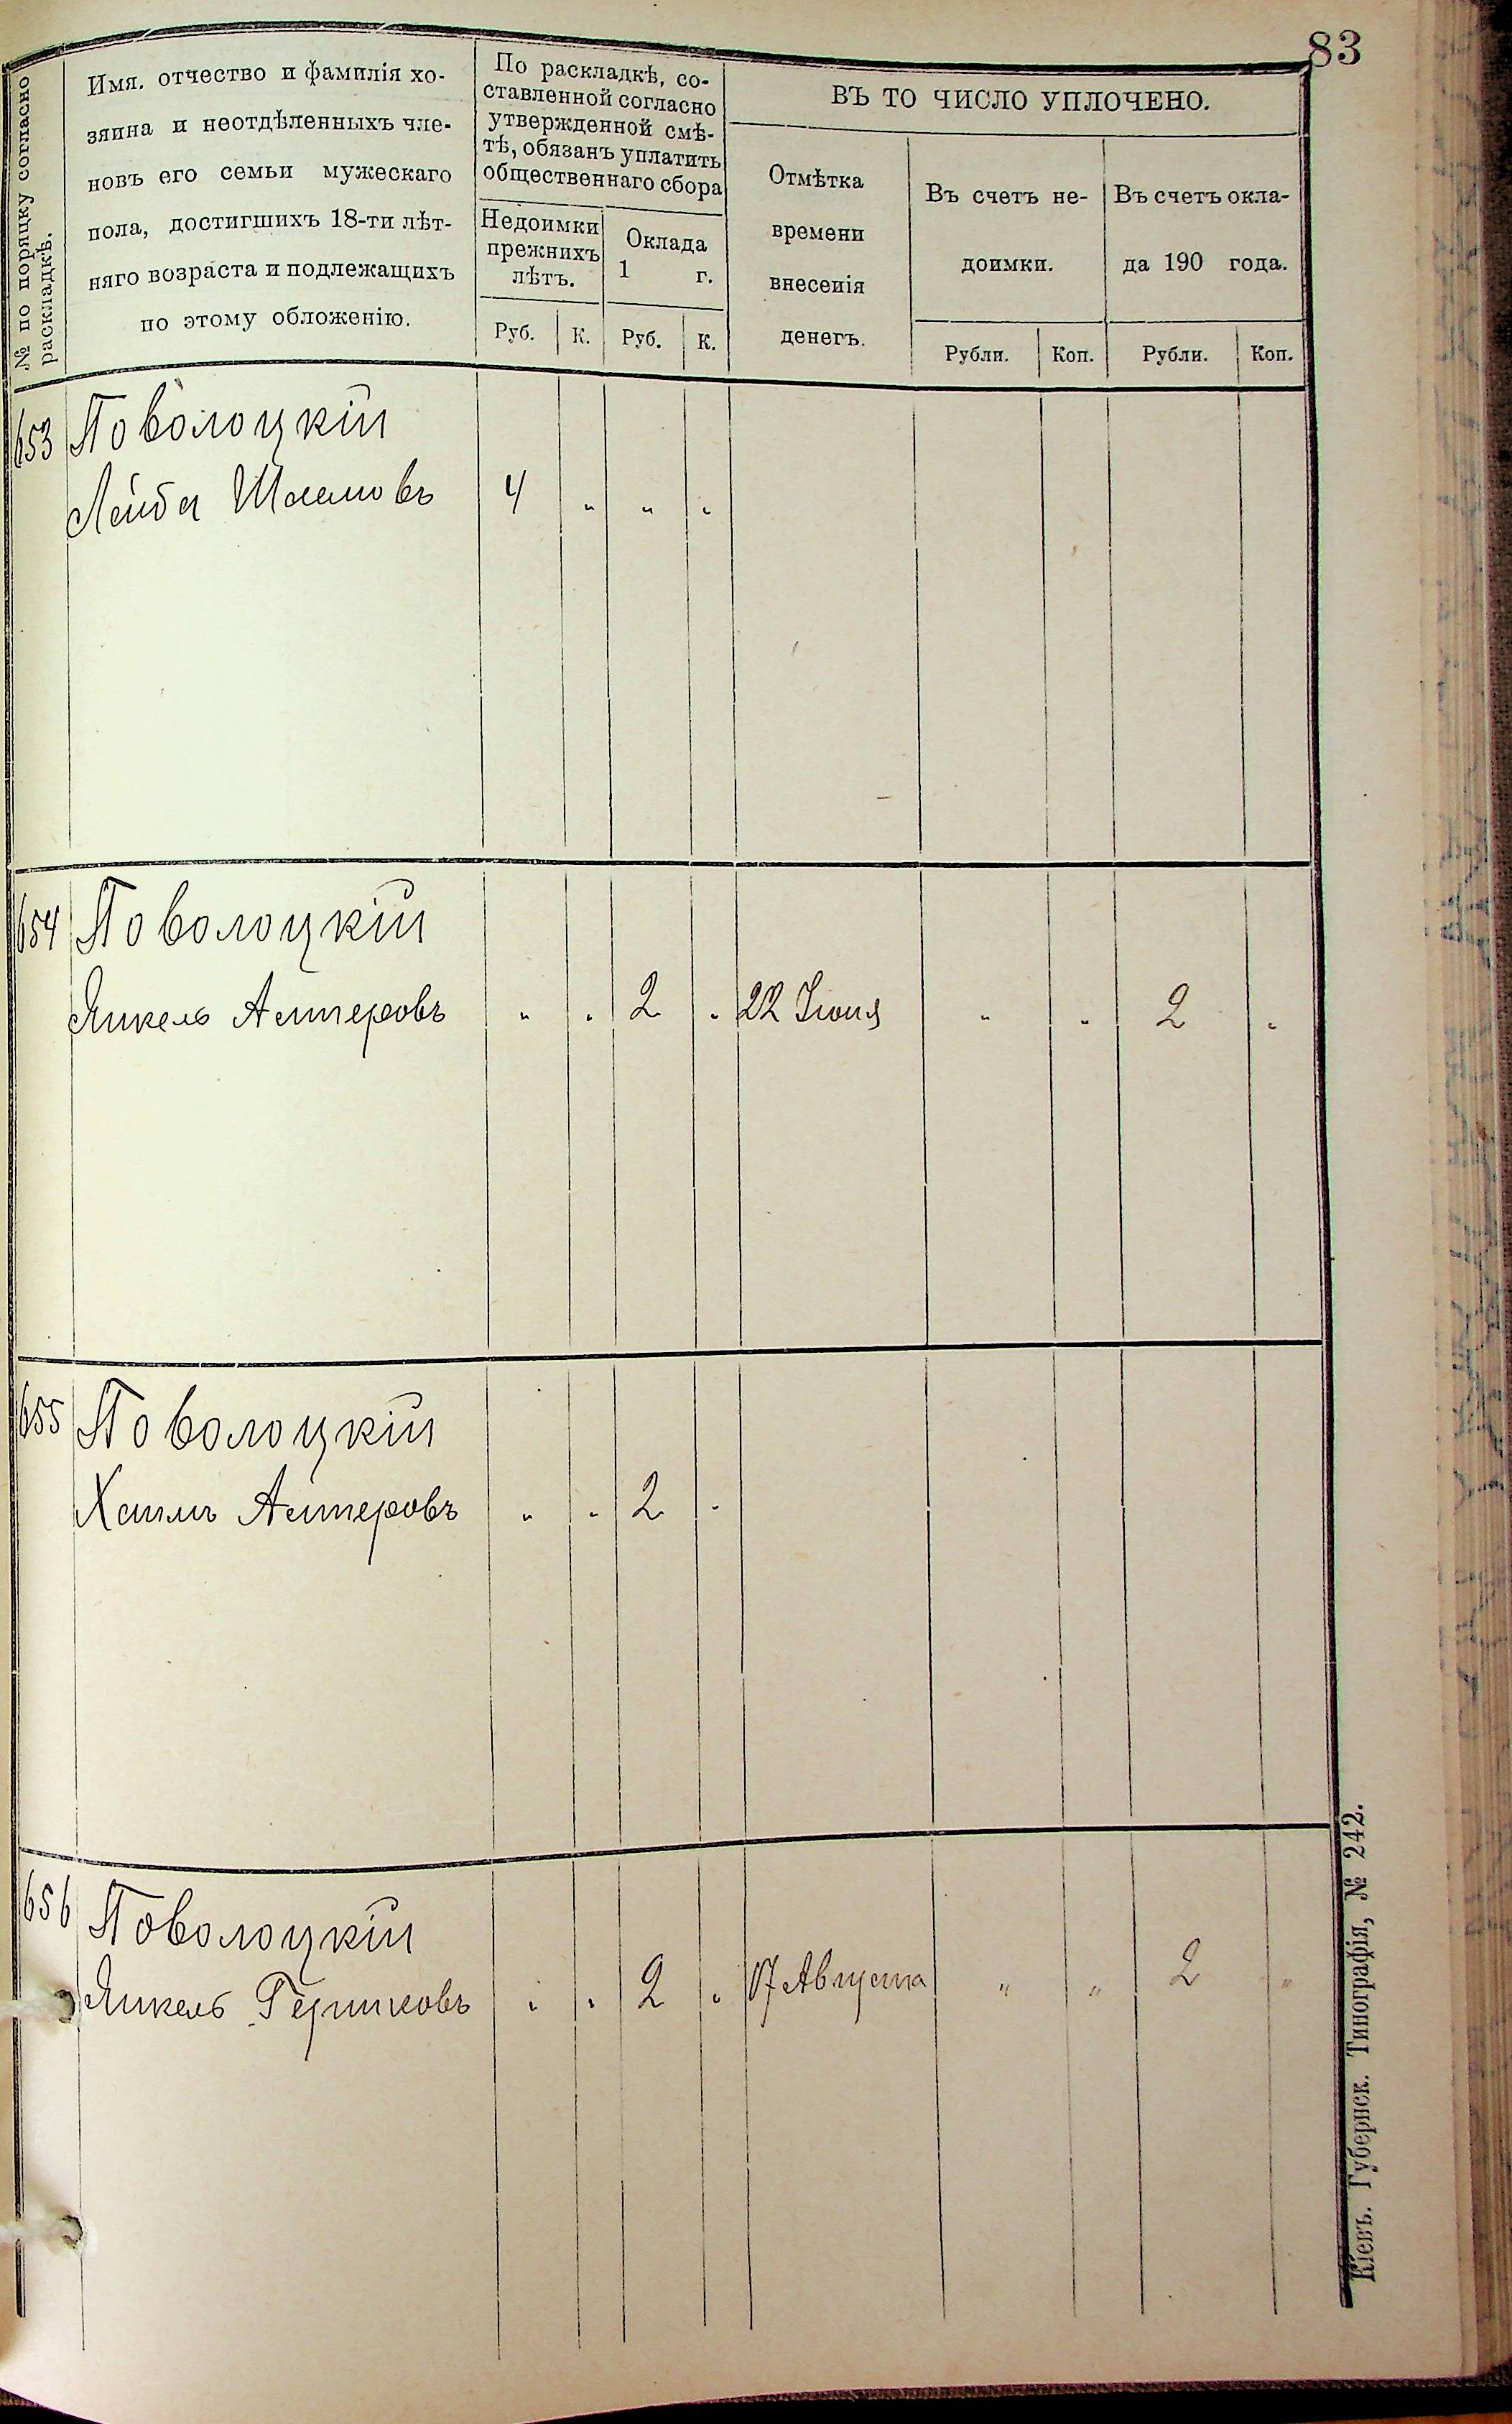 83
№ по порядку согласно
раскладкѣ.
Имя, отчество и фамилія хо-
зяина и неотдѣленныхъ чле-
новъ его семьи мужескаго
пола, достигшихъ 18-ти лѣт-
няго возраста и подлежащихъ
по этому обложенію.
По раскладкѣ, со-
ставленной согласно
утвержденной смѣ-
тѣ, обязанъ уплатить
общественнаго сбора
Недоимки
прежнихъ
лѣтъ.
Руб. К.
Оклада
1 г.
Руб. К.
ВЪ ТО ЧИСЛО УПЛОЧЕНО.
Отмѣтка
времени
внесенія
денегъ.
Въ счетъ не-
доимки.
Рубли. Коп.
Въ счетъ окла-
да 190 года.
Рубли. Коп.
653 Поволоцкій
Лейба 4 " " "
654 Поволоцкій
Янкель Алтеровъ " " 2 " 22 Іюня " " 2 "
655 Поволоцкій
Хаимъ Алтеровъ " " 2 "
656 Поволоцкій
Янкель Гершковъ " " 2 " 17 Августа " " 2 "
Кіевъ. Губернск. Типографія, № 242.